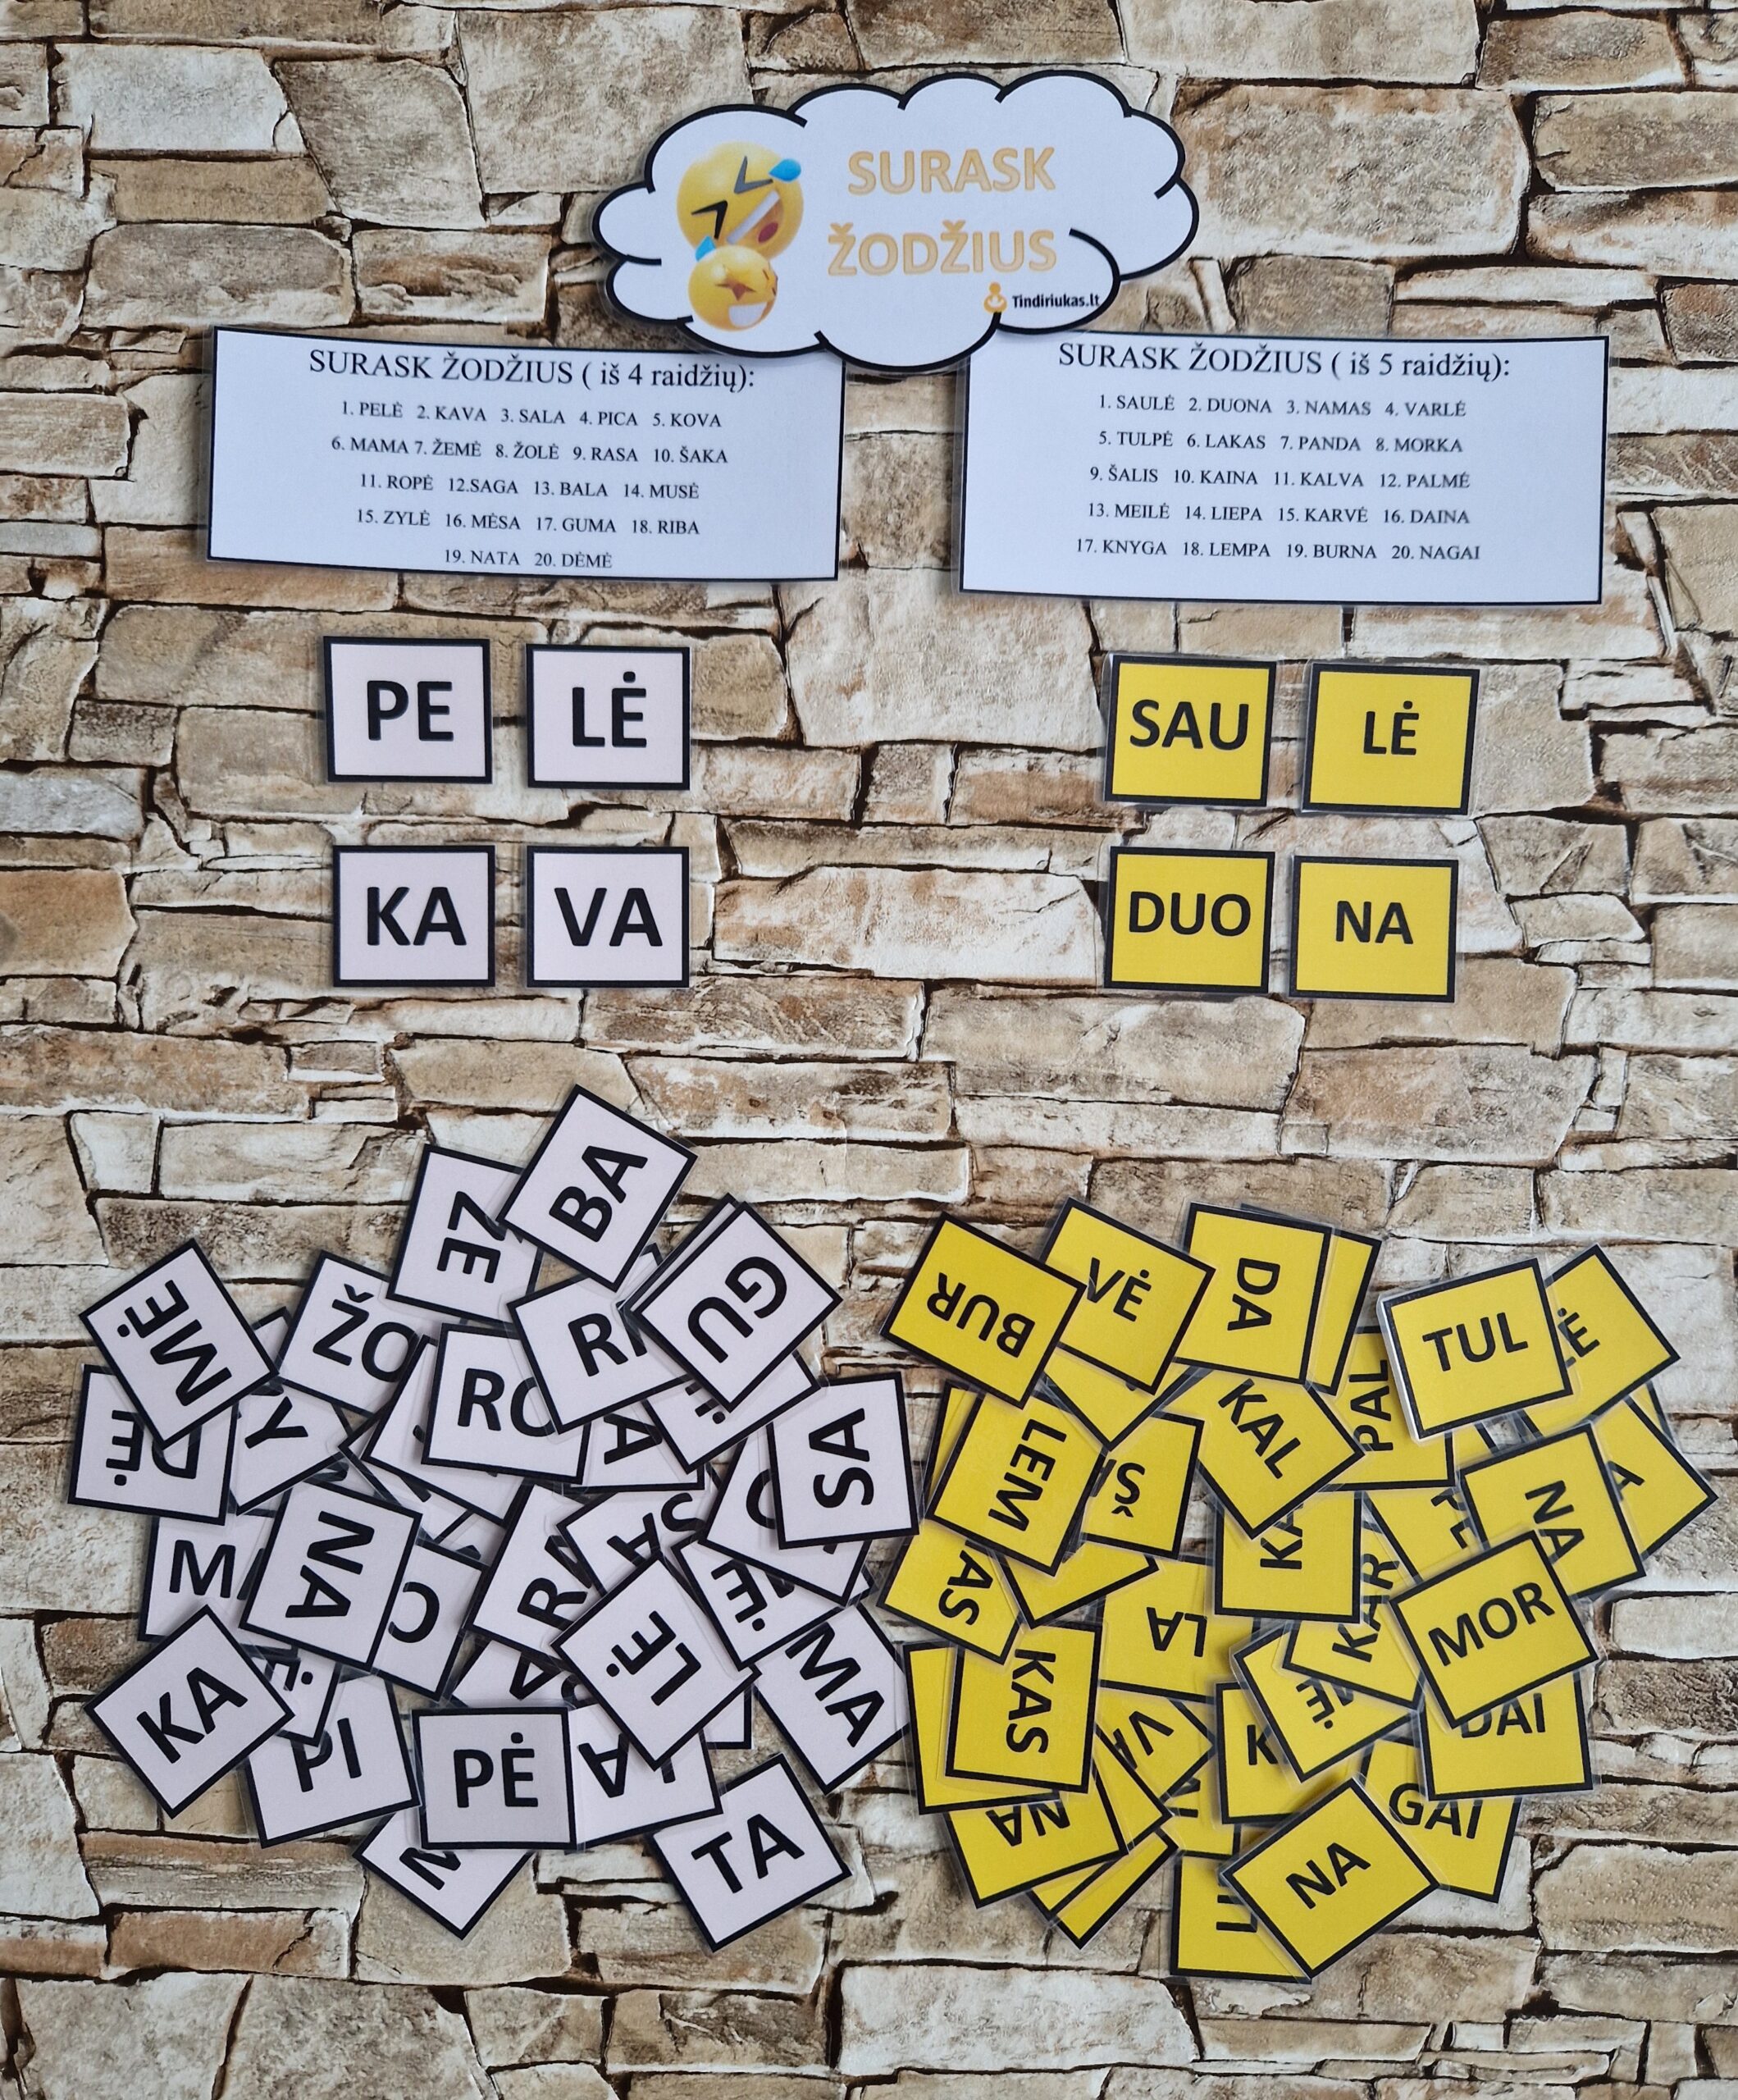 SURASK
ŽODŽIUS
Tindiriukas.lt
SURASK ŽODŽIUS ( iš 4 raidžių):
1. PELĖ 2. KAVA 3. SALA 4. PICA 5. KOVA
6. MAMA 7. ŽEMĖ 8. ŽOLĖ 9. RASA 10. ŠAKA
11. ROPĖ 12.SAGA 13. BALA 14. MUSĖ
15. ZYLĖ 16. MĖSA 17. GUMA 18. RIBA
19. NATA 20. DĖMĖ
SURASK ŽODŽIUS ( iš 5 raidžių):
1. SAULĖ 2. DUONA 3. NAMAS 4. VARLĖ
5. TULPĖ 6. LAKAS 7. PANDA 8. MORKA
9. ŠALIS 10. KAINA 11. KALVA 12. PALMĖ
13. MEILĖ 14. LIEPA 15. KARVĖ 16. DAINA
17. KNYGA 18. LEMPA 19. BURNA 20. NAGAI
PE LĖ
KA VA
SAU LĖ
DUO NA
BA
GU
MĖ
ŽO
RO
DĖ
SA
NA
LĖ
MA
KA
PI
PĖ
TA
BUR
VĖ
DA
TUL
PAL
KAL
LEM
NA
KAR
MOR
LA
KAS
VA
DAI
GAI
NA
NA